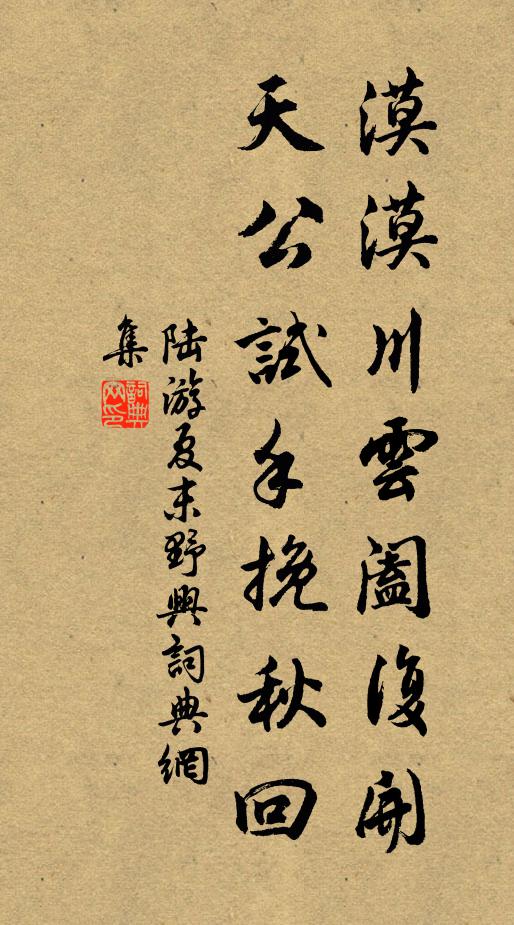 漠漠川雲闔復開
天公試手挽秋回
陸游夏末野興詞典網
集
詞典網印